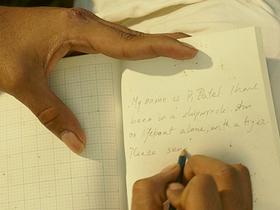 My name is P. Patel I have
been in a shipwreck. Am
on lifeboat alone, with a tiger.
Please sen